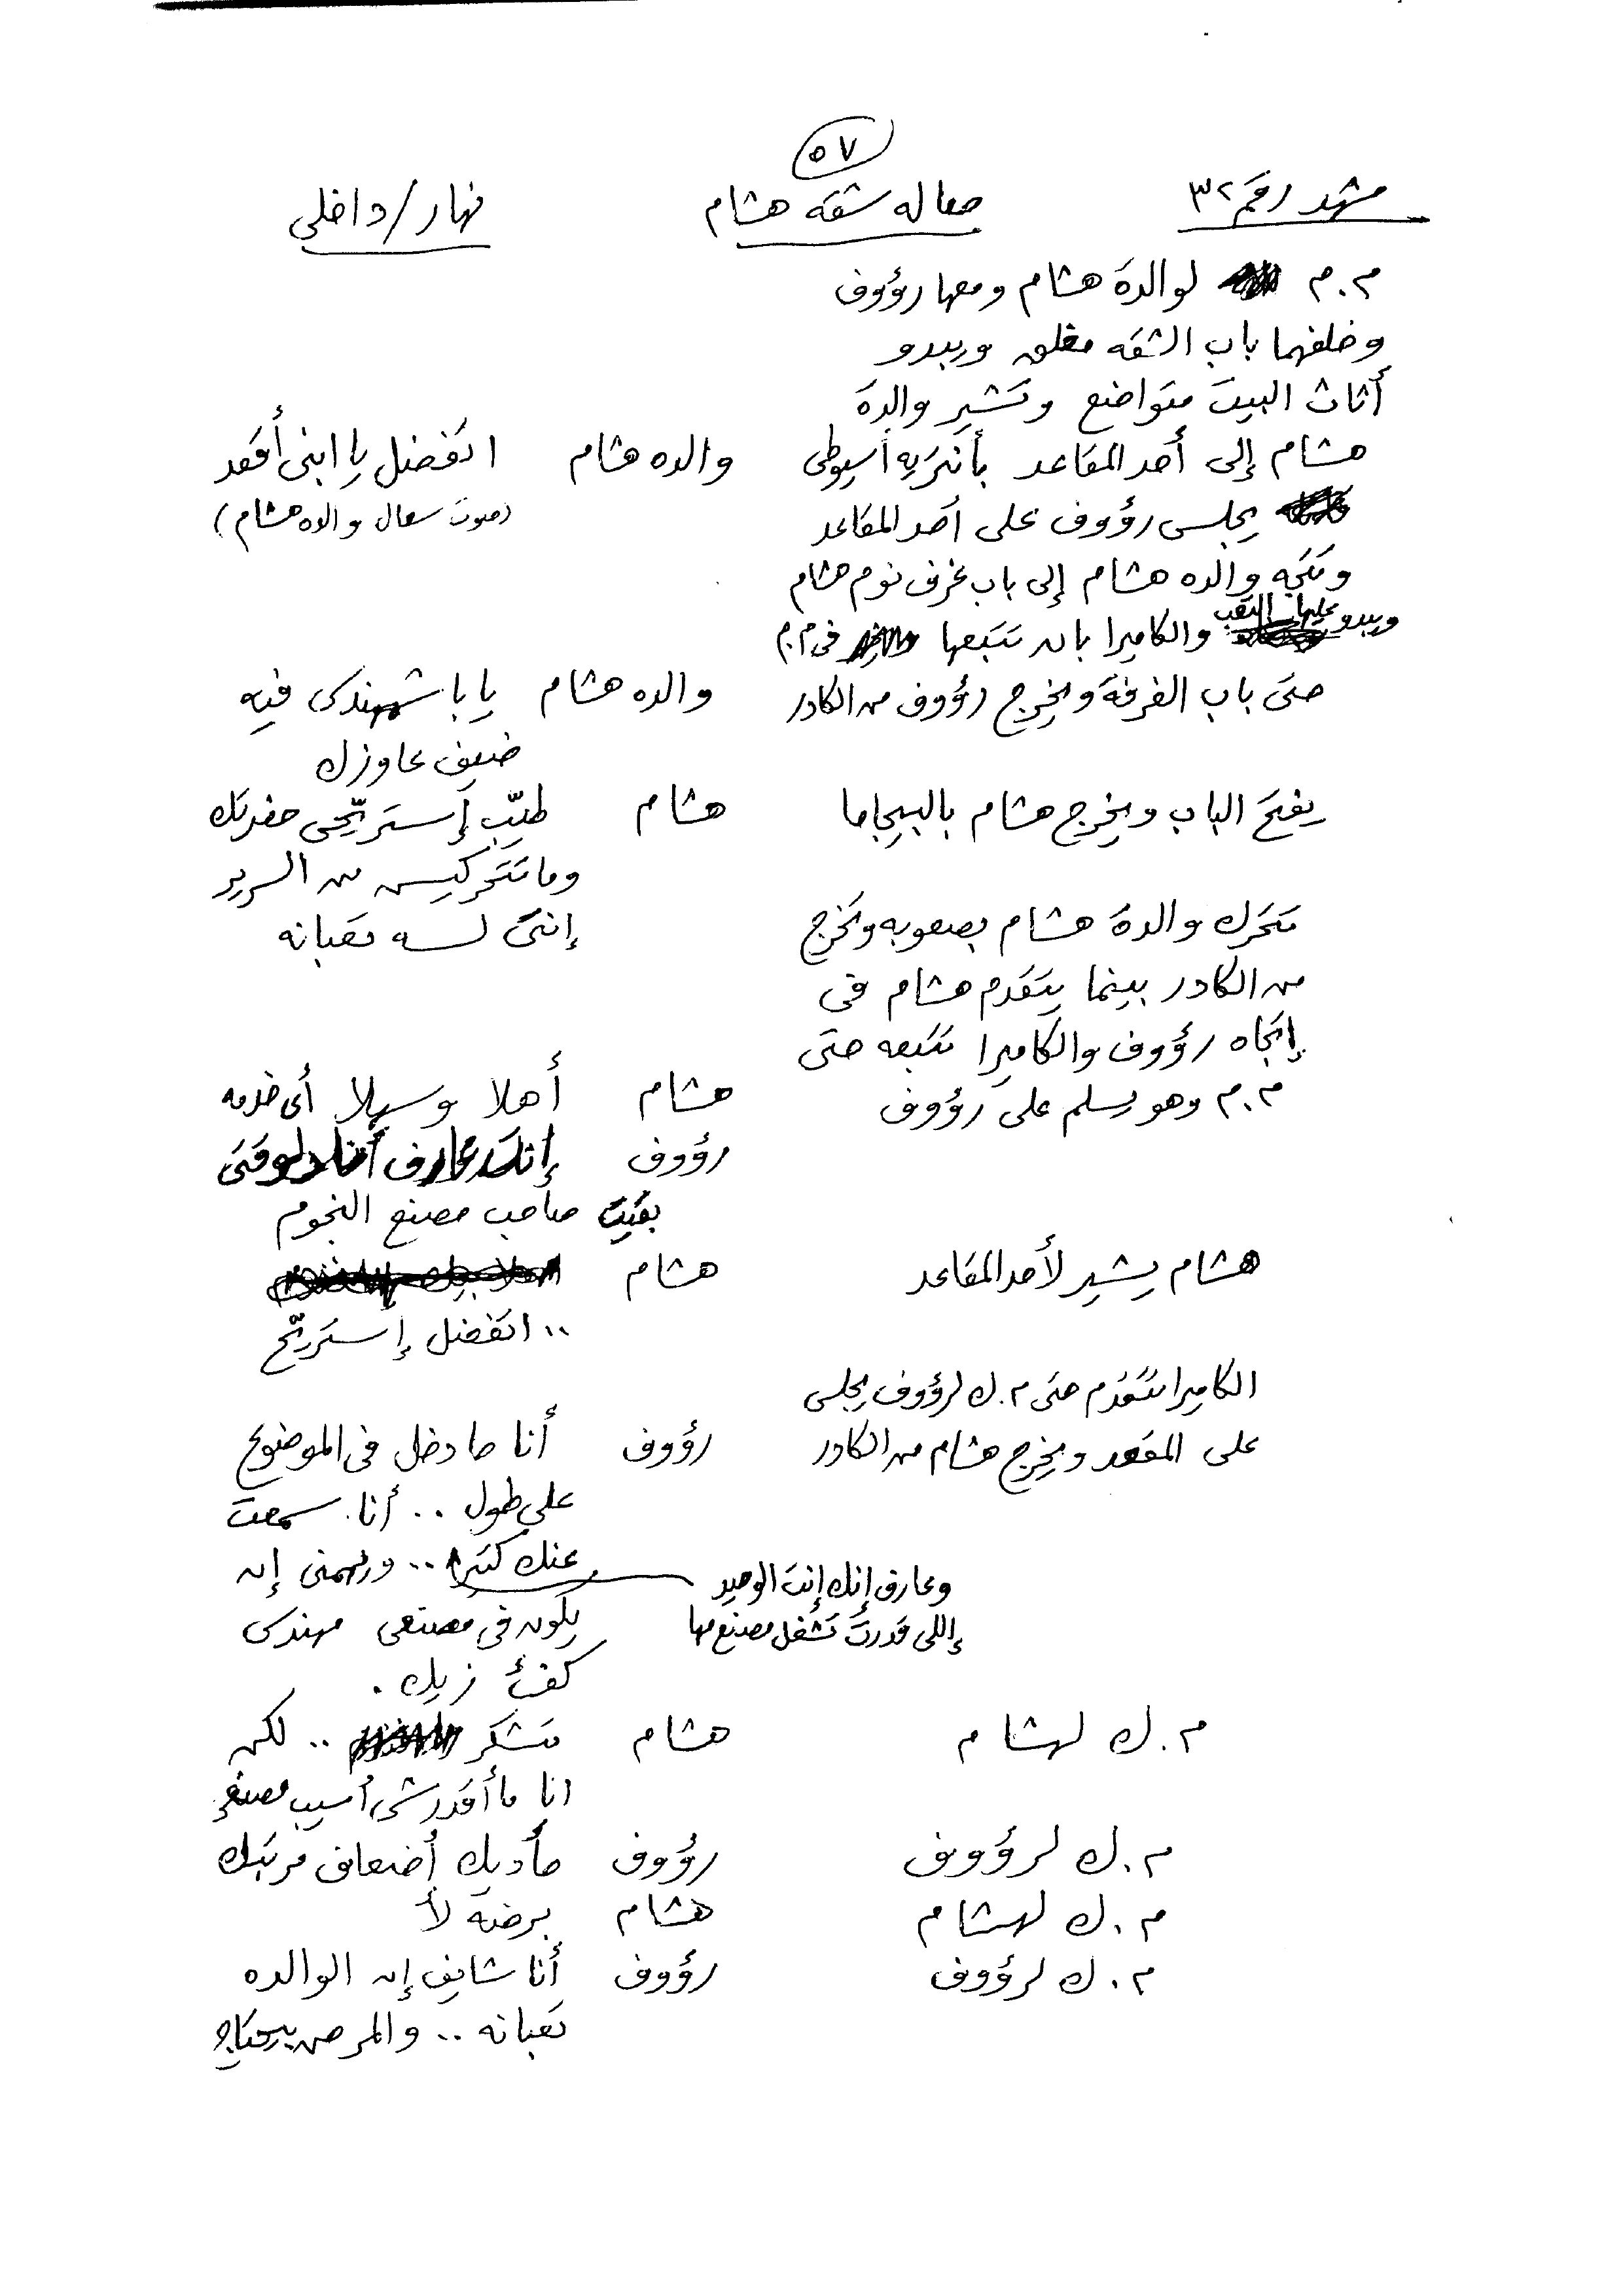 ٥٧
مشهد رقم ٣٢ صاله شقه هشام نهار/داخلى
م.م لوالدة هشام ومعها رؤوف
وخلفهما باب الشقه مغلق ويبدو
أثاث البيت متواضع وتشير والدة
هشام إلى أحد المقاعد بأنتريه أسيوطى والده هشام اتفضل يا ابنى أقعد
يجلس رؤوف على أحد المقاعد (صوت سعال والده هشام)
وتتجه والده هشام إلى باب غرف نوم هشام
ويبدو عليها التعب والكاميرا بان تتبعها فى م.م
حتى باب الغرفة ويخرج رؤوف من الكادر والده هشام يا باشمهندس فيه
ضيف عاوزك
يفتح الباب ويخرج هشام بالبيجاما هشام طيّب إستريّحى حضرتك
وما تتحركيش من السرير
تتحرك والدة هشام بصعوبه وتخرج إنتى لسه تعبانه
من الكادر بينما يتقدم هشام فى
إتجاه رؤوف والكاميرا تتبعه حتى
م.م وهو يسلم على رؤوف هشام أهلا وسهلا أى خدمه
رؤوف إنت عارف أنا دلوقتى
بقيت صاحب مصنع النجوم
هشام يشير لأحد المقاعد هشام
.. اتفضل إستريّح
الكاميرا تتقدم حتى م.ك لرؤوف يجلس
على المقعد ويخرج هشام من الكادر رؤوف أنا حا دخل فى الموضوع
على طول .. أنا سمعت
عنك كتير .. ويهمنى إن
وعارف إنك إنت الوحيد
إللى قدرت تشغل مصنع مها
يكون فى مصنعى مهندس
كفئ زيك .
م.ك لهشام هشام متشكر .. لكن
انا ما أقدرش أسيب مصنعى
م.ك لرؤوف رؤوف حأديك أضعاف مرتبك
م.ك لهشام هشام برضه لأ
م.ك لرؤوف رؤوف أنا شايف إن الوالده
تعبانه .. والمرض بيحتاج